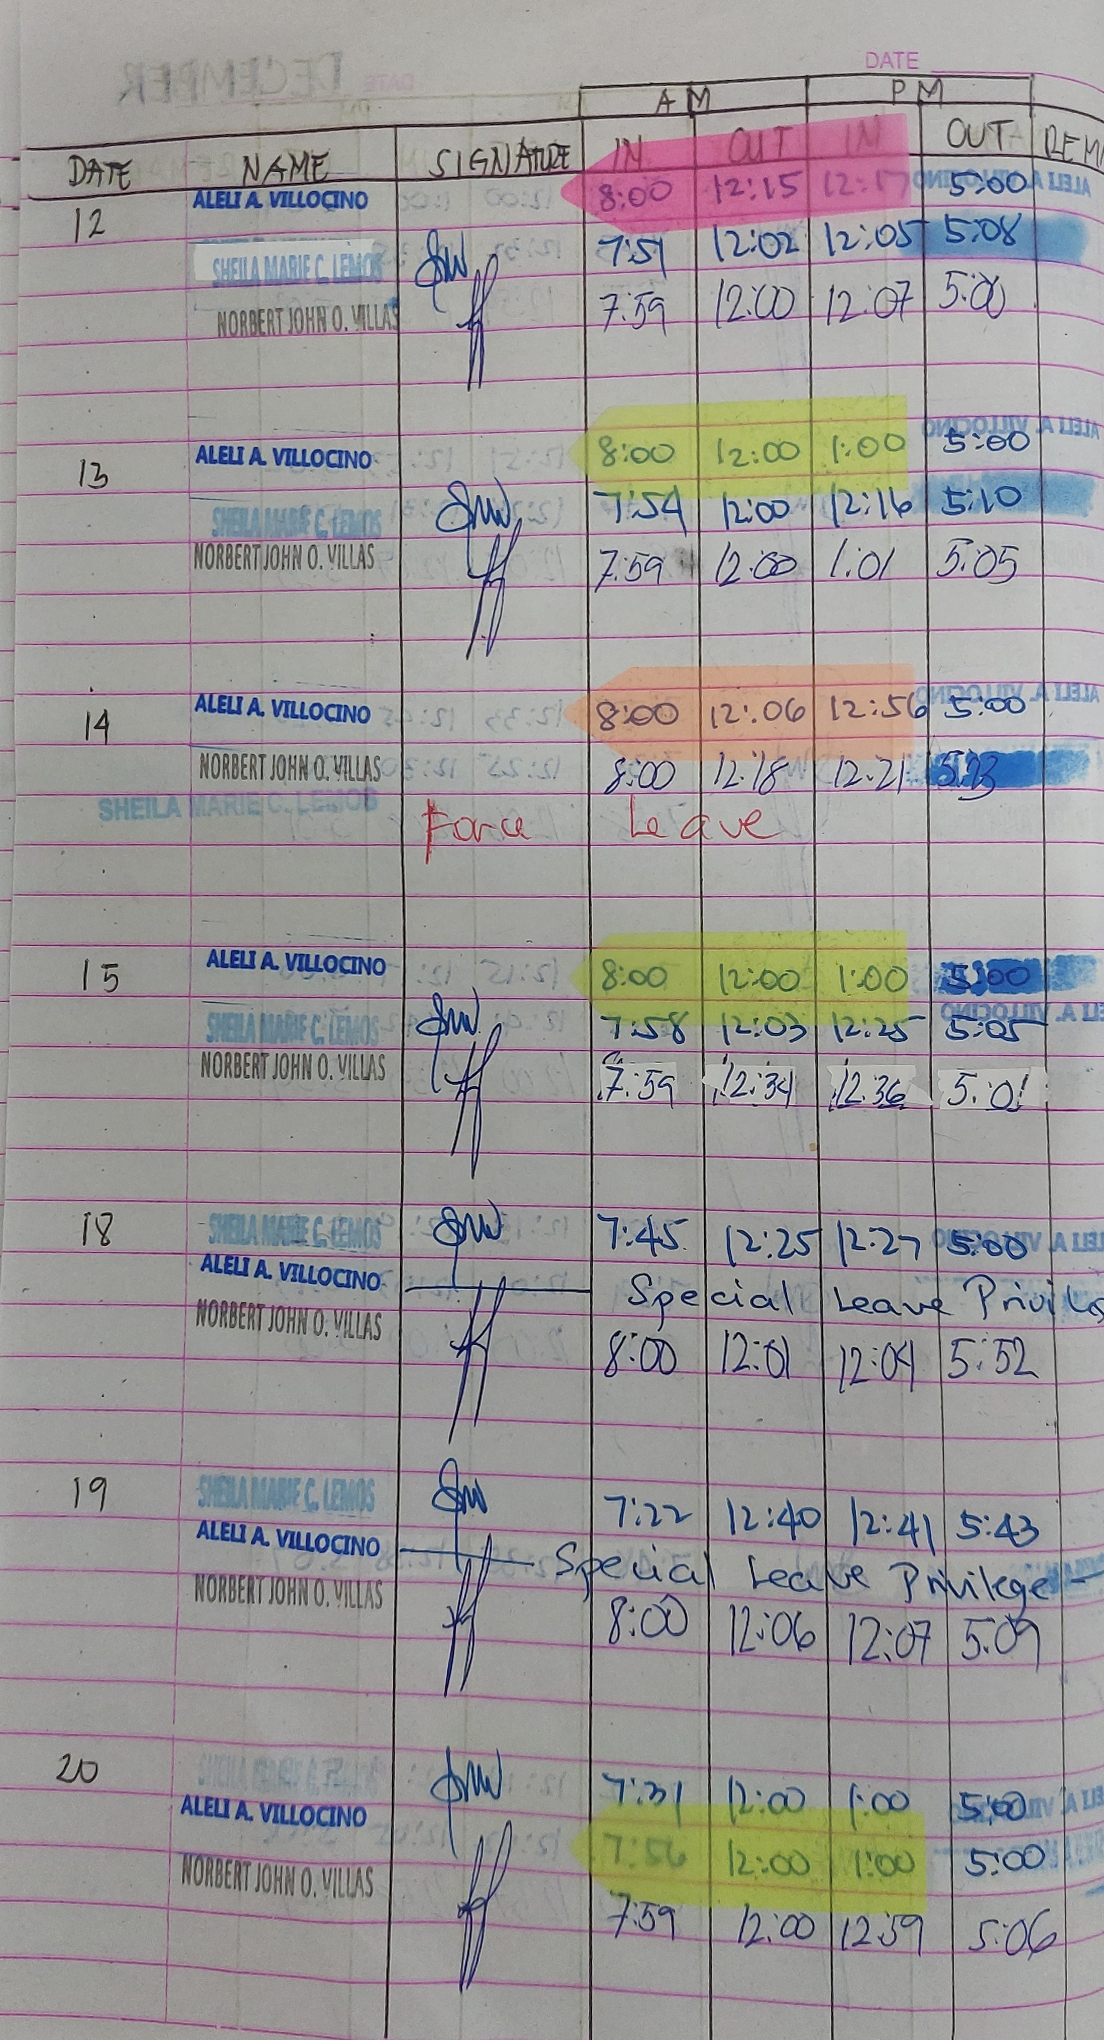 DECEMBER
DATE
AM PM
DATE NAME SIGNATURE IN OUT IN OUT
12 ALELI A. VILLOCINO 8:00 12:15 12:17 5:00
SHEILA MARIE C. LEMOS 7:51 12:02 12:05 5:08
NORBERT JOHN O. VILLAS 7:59 12:00 12:07 5:00
13 ALELI A. VILLOCINO 8:00 12:00 1:00 5:00
SHEILA MARIE C. LEMOS 7:54 12:00 12:16 5:10
NORBERT JOHN O. VILLAS 7:59 12:00 1:01 5:05
14 ALELI A. VILLOCINO 8:00 12:06 12:56 5:00
NORBERT JOHN O. VILLAS 8:00 12:18 12:21
SHEILA MARIE C. LEMOS Force Leave
15 ALELI A. VILLOCINO 8:00 12:00 1:00 5:00
SHEILA MARIE C. LEMOS 7:58 12:03 12:25 5:05
NORBERT JOHN O. VILLAS 7:59 12:34 12:36 5:01
18 SHEILA MARIE C. LEMOS 7:45 12:25 12:27 5:00
ALELI A. VILLOCINO Special Leave
NORBERT JOHN O. VILLAS 8:00 12:01 12:04 5:52
19 SHEILA MARIE C. LEMOS 7:22 12:40 12:41 5:43
ALELI A. VILLOCINO Special Leave Privilege
NORBERT JOHN O. VILLAS 8:00 12:06 12:07 5:09
20 7:31 12:00 1:00 5:00
ALELI A. VILLOCINO 7:56 12:00 1:00 5:00
NORBERT JOHN O. VILLAS 7:59 12:00 12:59 5:06